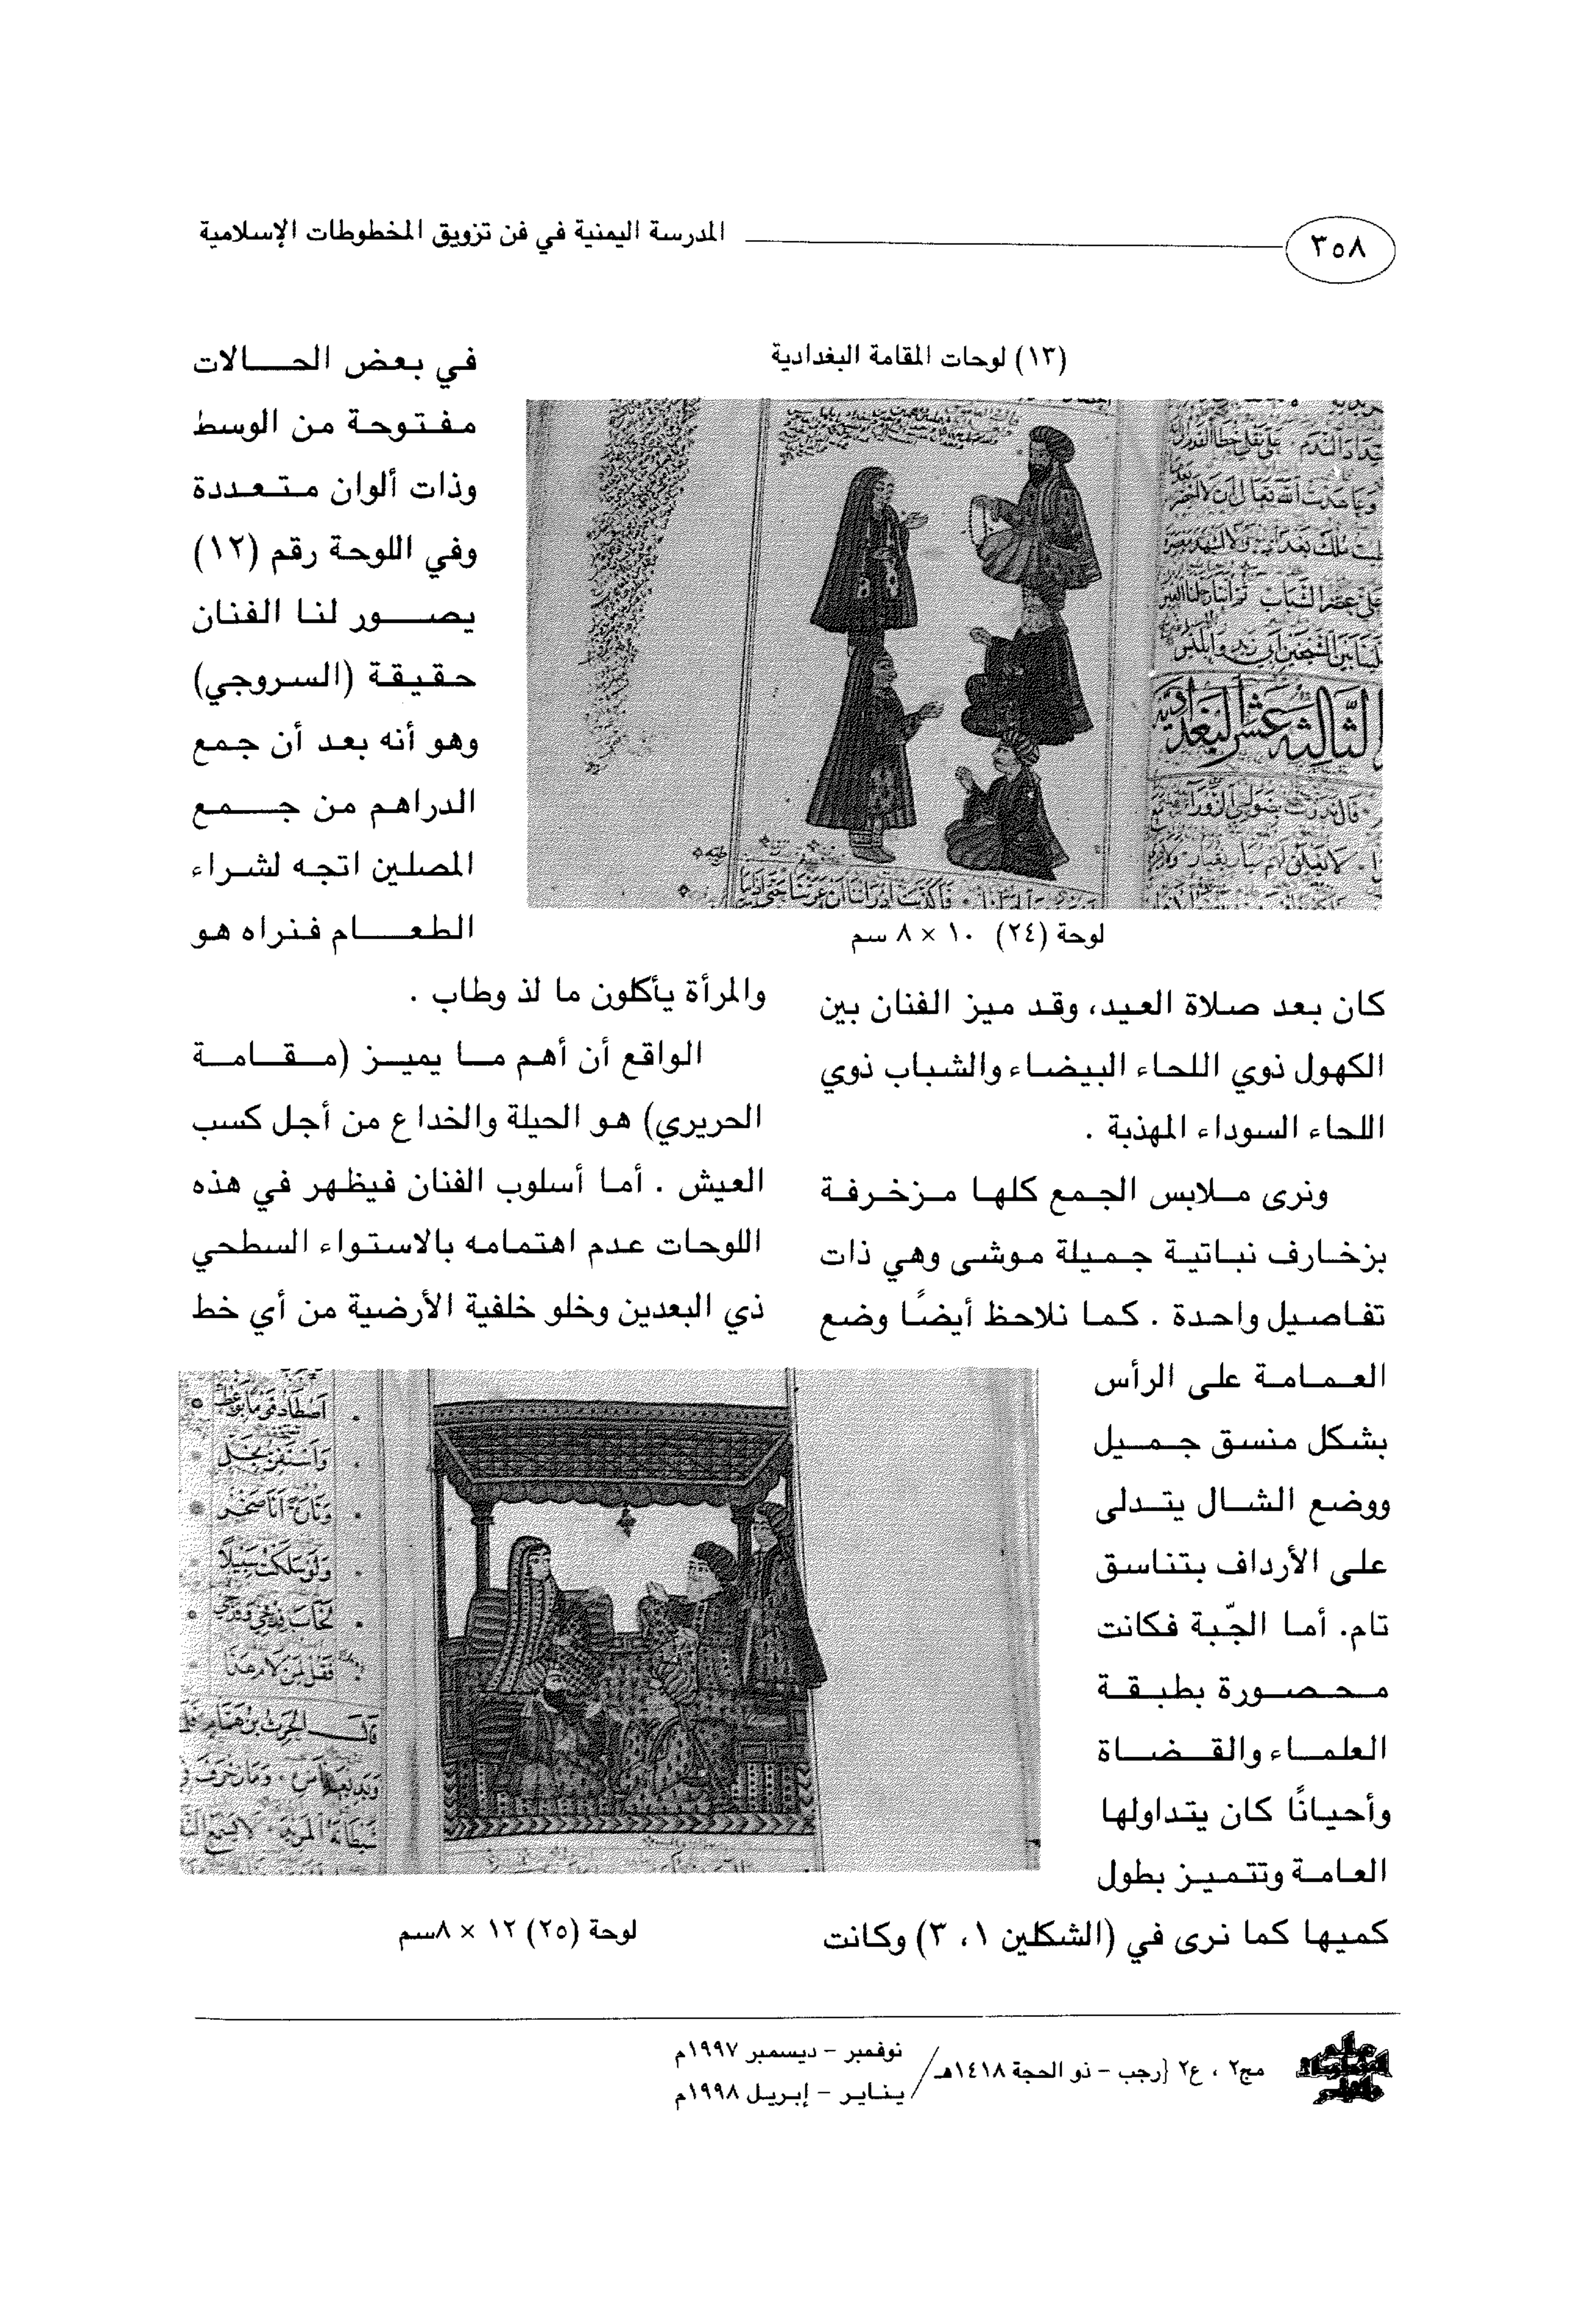 ٣٥٨
المدرسة اليمنية في فن تزويق المخطوطات الإسلامية
(١٣) لوحات المقامة البغدادية
لوحة (٢٤) ١٠ × ٨ سم
كان بعد صلاة العيد، وقد ميز الفنان بين
الكهول ذوي اللحاء البيضاء والشباب ذوي
اللحاء السوداء المهذبة .
ونرى ملابس الجمع كلها مزخرفة
بزخارف نباتية جميلة موشى وهي ذات
تفاصيل واحدة . كما نلاحظ أيضًا وضع
العمامة على الرأس
بشكل منسق جميل
ووضع الشال يتدلى
على الأرداف بتناسق
تام. أما الجّبة فكانت
محصورة بطبقة
العلماء والقضاة
وأحيانًا كان يتداولها
العامة وتتميز بطول
كميها كما نرى في (الشكلين ١، ٣) وكانت
في بعض الحالات
مفتوحة من الوسط
وذات ألوان متعددة
وفي اللوحة رقم (١٢)
يصور لنا الفنان
حقيقة (السروجي)
وهو أنه بعد أن جمع
الدراهم من جمع
المصلين اتجه لشراء
الطعام فنراه هو
والمرأة يأكلون ما لذ وطاب .
الواقع أن أهم ما يميز (مقامة
الحريري) هو الحيلة والخداع من أجل كسب
العيش . أما أسلوب الفنان فيظهر في هذه
اللوحات عدم اهتمامه بالاستواء السطحي
ذي البعدين وخلو خلفية الأرضية من أي خط
لوحة (٢٥) ١٢ × ٨سم
مج٢ ، ع٢ {رجب - ذو الحجة ١٤١٨هـ/
نوفمبر - ديسمبر ١٩٩٧م
يناير - إبريل ١٩٩٨م